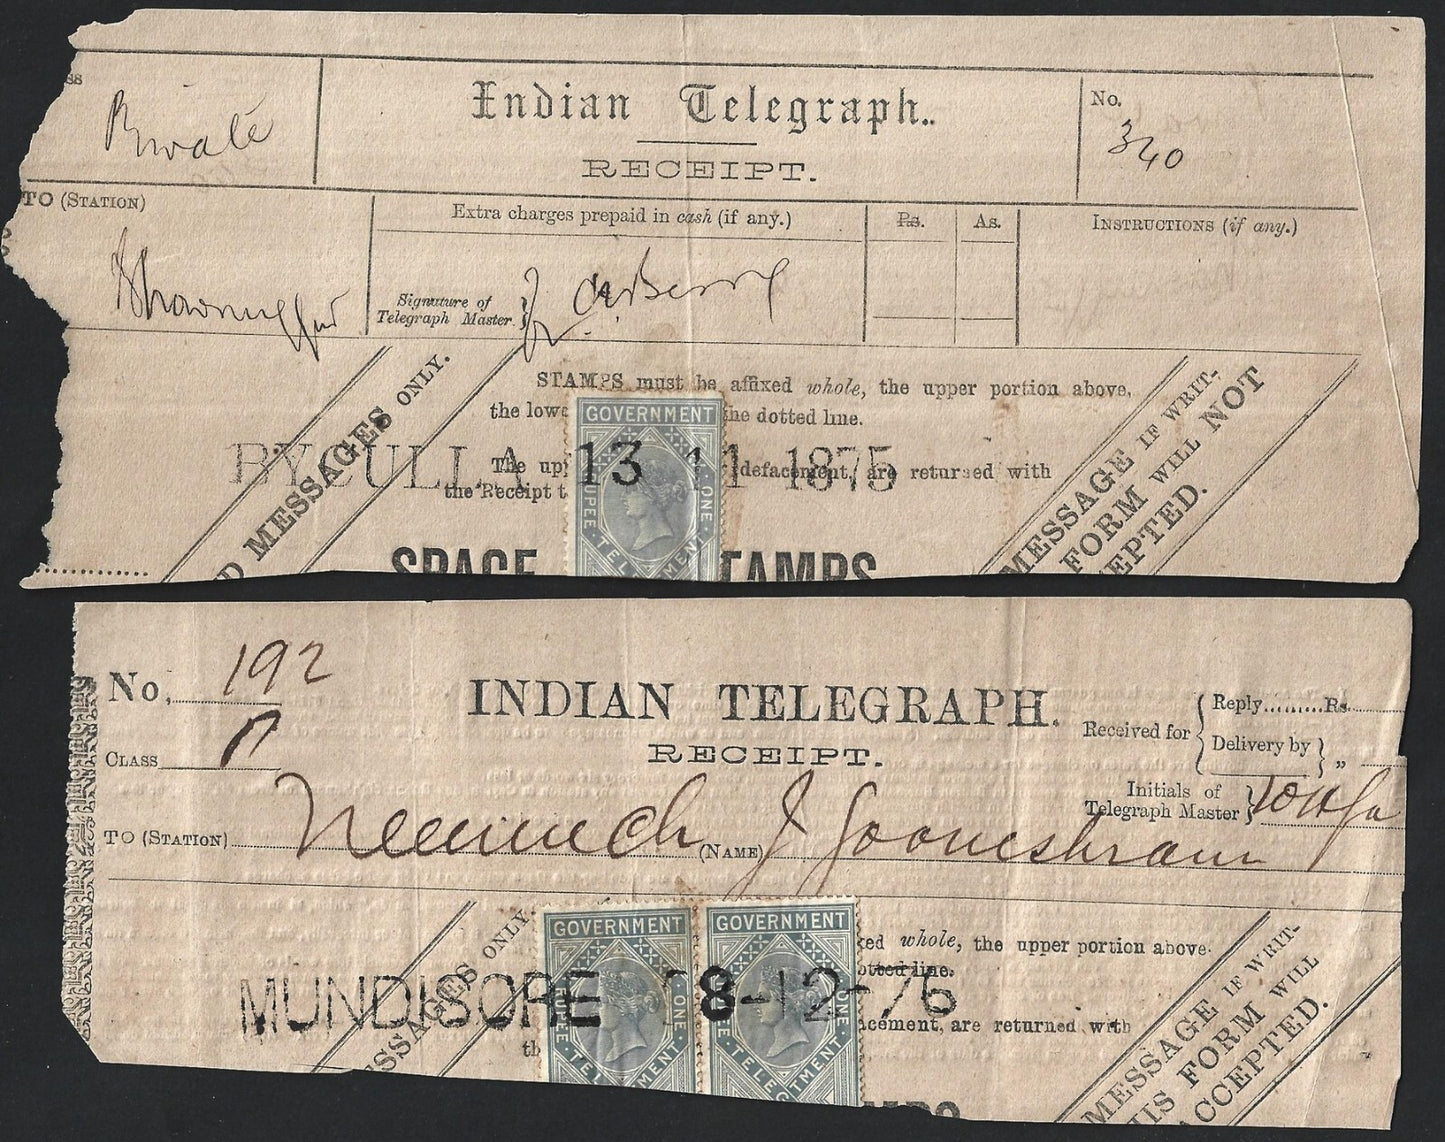 ss
Private
Indian Telegraph.
RECEIPT.
No.
340
TO (STATION)
Extra charges prepaid in cash (if any.)
Rs.
As.
INSTRUCTIONS (if any.)
Bhownuggur
Signature of
Telegraph Master.
STAMPS must be affixed whole, the upper portion above,
the lowe he dotted line.
BYCULLA 13 11 1875
The up defacement, are returned with
the Receipt t
SPACE TAMPS
D MESSAGES ONLY.
MESSAGE IF WRIT-
FORM WILL NOT
EPTED.
GOVERNMENT
ONE RUPEE
TEL MENT
No. 192
CLASS P
INDIAN TELEGRAPH.
RECEIPT.
Received for
Reply.........Rs.
Delivery by "
Initials of
Telegraph Master
TO (STATION) Neemuch (NAME) J Gooneshram
MUNDISORE 8-12-76
ESSAGES ONLY.
ed whole, the upper portion above.
otted line.
acement, are returned with
th
MPS
MESSAGE IF WRIT-
IIS FORM WILL
CCEPTED.
GOVERNMENT
ONE PEE
TEL MENT
GOVERNMENT
ONE
TELEG TMENT